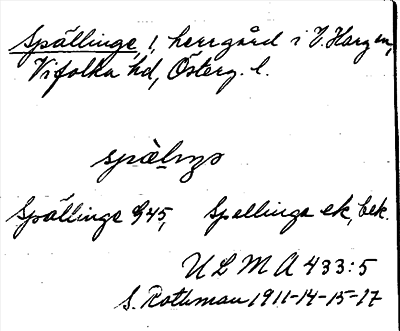 Spällinge, 1, herrgård i V. Harg sn,
Vifolka hd, Österg. l.
Spällinge G45, Spellinge ek, bek.
ULMA 433:5
S. Rothman 1911-14-15-17